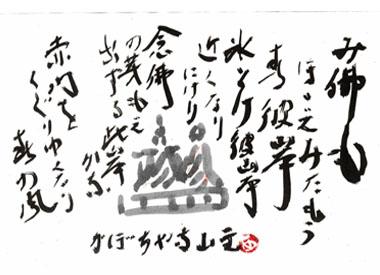 み佛も
ほほゑみたもう
春彼岸
氷とけ彼岸
近くなり
にけり
念佛
の芽もえ
此岸
かな
赤門を
くぐりゆくなり
春の風
かぼちゃ寺山主